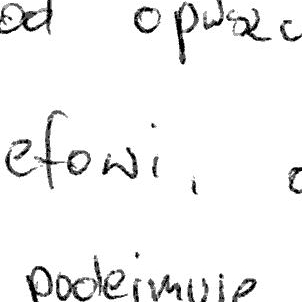 od opusz
efowi,
podejmuje